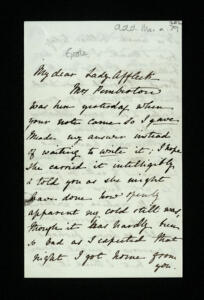 Grote
My dear Lady Affleck
Mrs Pemberton
was here yesterday when
your note came so I gave
my answer instead
of waiting to write it; I hope
she carried it intelligibly,
& told you as she might
have done how
apparent my cold still was,
though it was hardly been
so bad as I expected that
night I got home from
you.